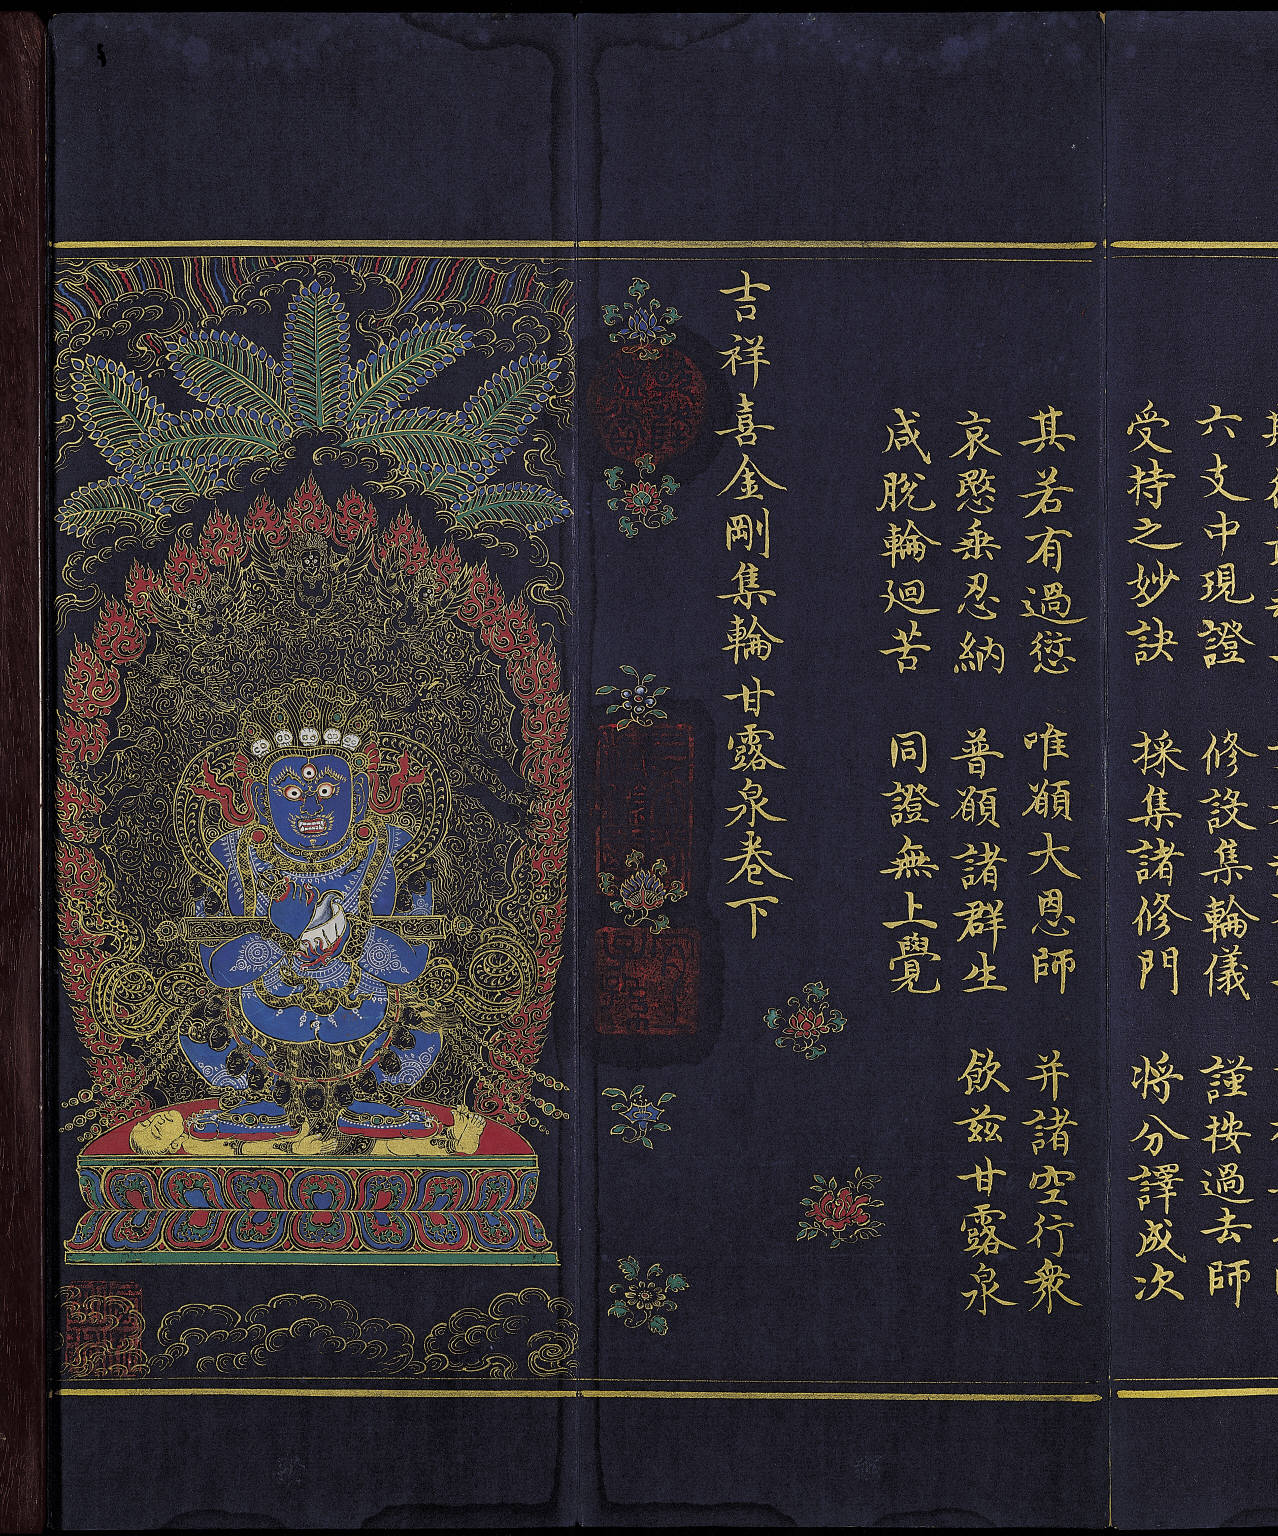 六支中現證 修設集輪儀 謹按過去師
受持之妙訣 採集諸修門 將分譯成次
其若有過愆 唯願大恩師 并諸空行衆
哀愍垂忍納 普願諸群生 飲茲甘露泉
咸脫輪廻苦 同證無上覺
吉祥喜金剛集輪甘露泉卷下